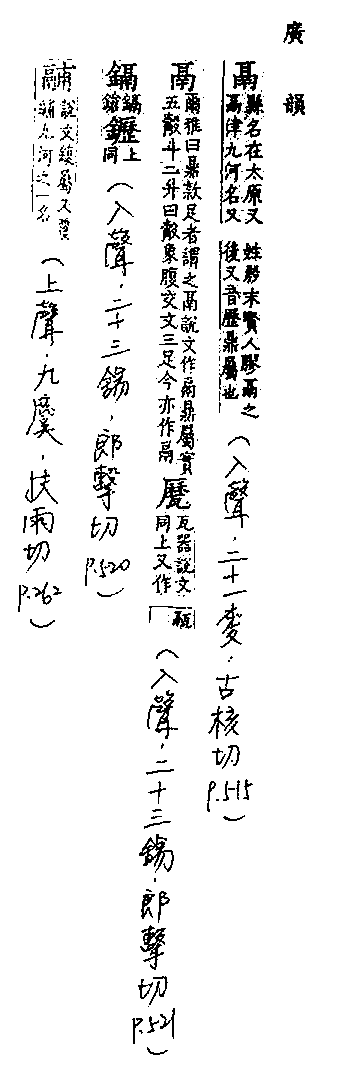 廣韻
鬲 縣名在太原又鬲津九河名又姓殷末賢人膠鬲之後又音歷鼎屬也（入聲．二十一麥．古核切 P.515）
鬲 爾雅曰鼎款足者謂之鬲說文作鬲鼎屬實五觳斗二升曰觳象腹交文三足今亦作鬲 䰛 瓦器說文同上又作（入聲．二十三錫．郎擊切 P.521）
鎘 鎘鎗䥶上同（入聲．二十三錫．郎擊切 P.520）
鬴 說文鍑屬又覆鬴九河之一名（上聲．九麌．扶雨切 P.262）